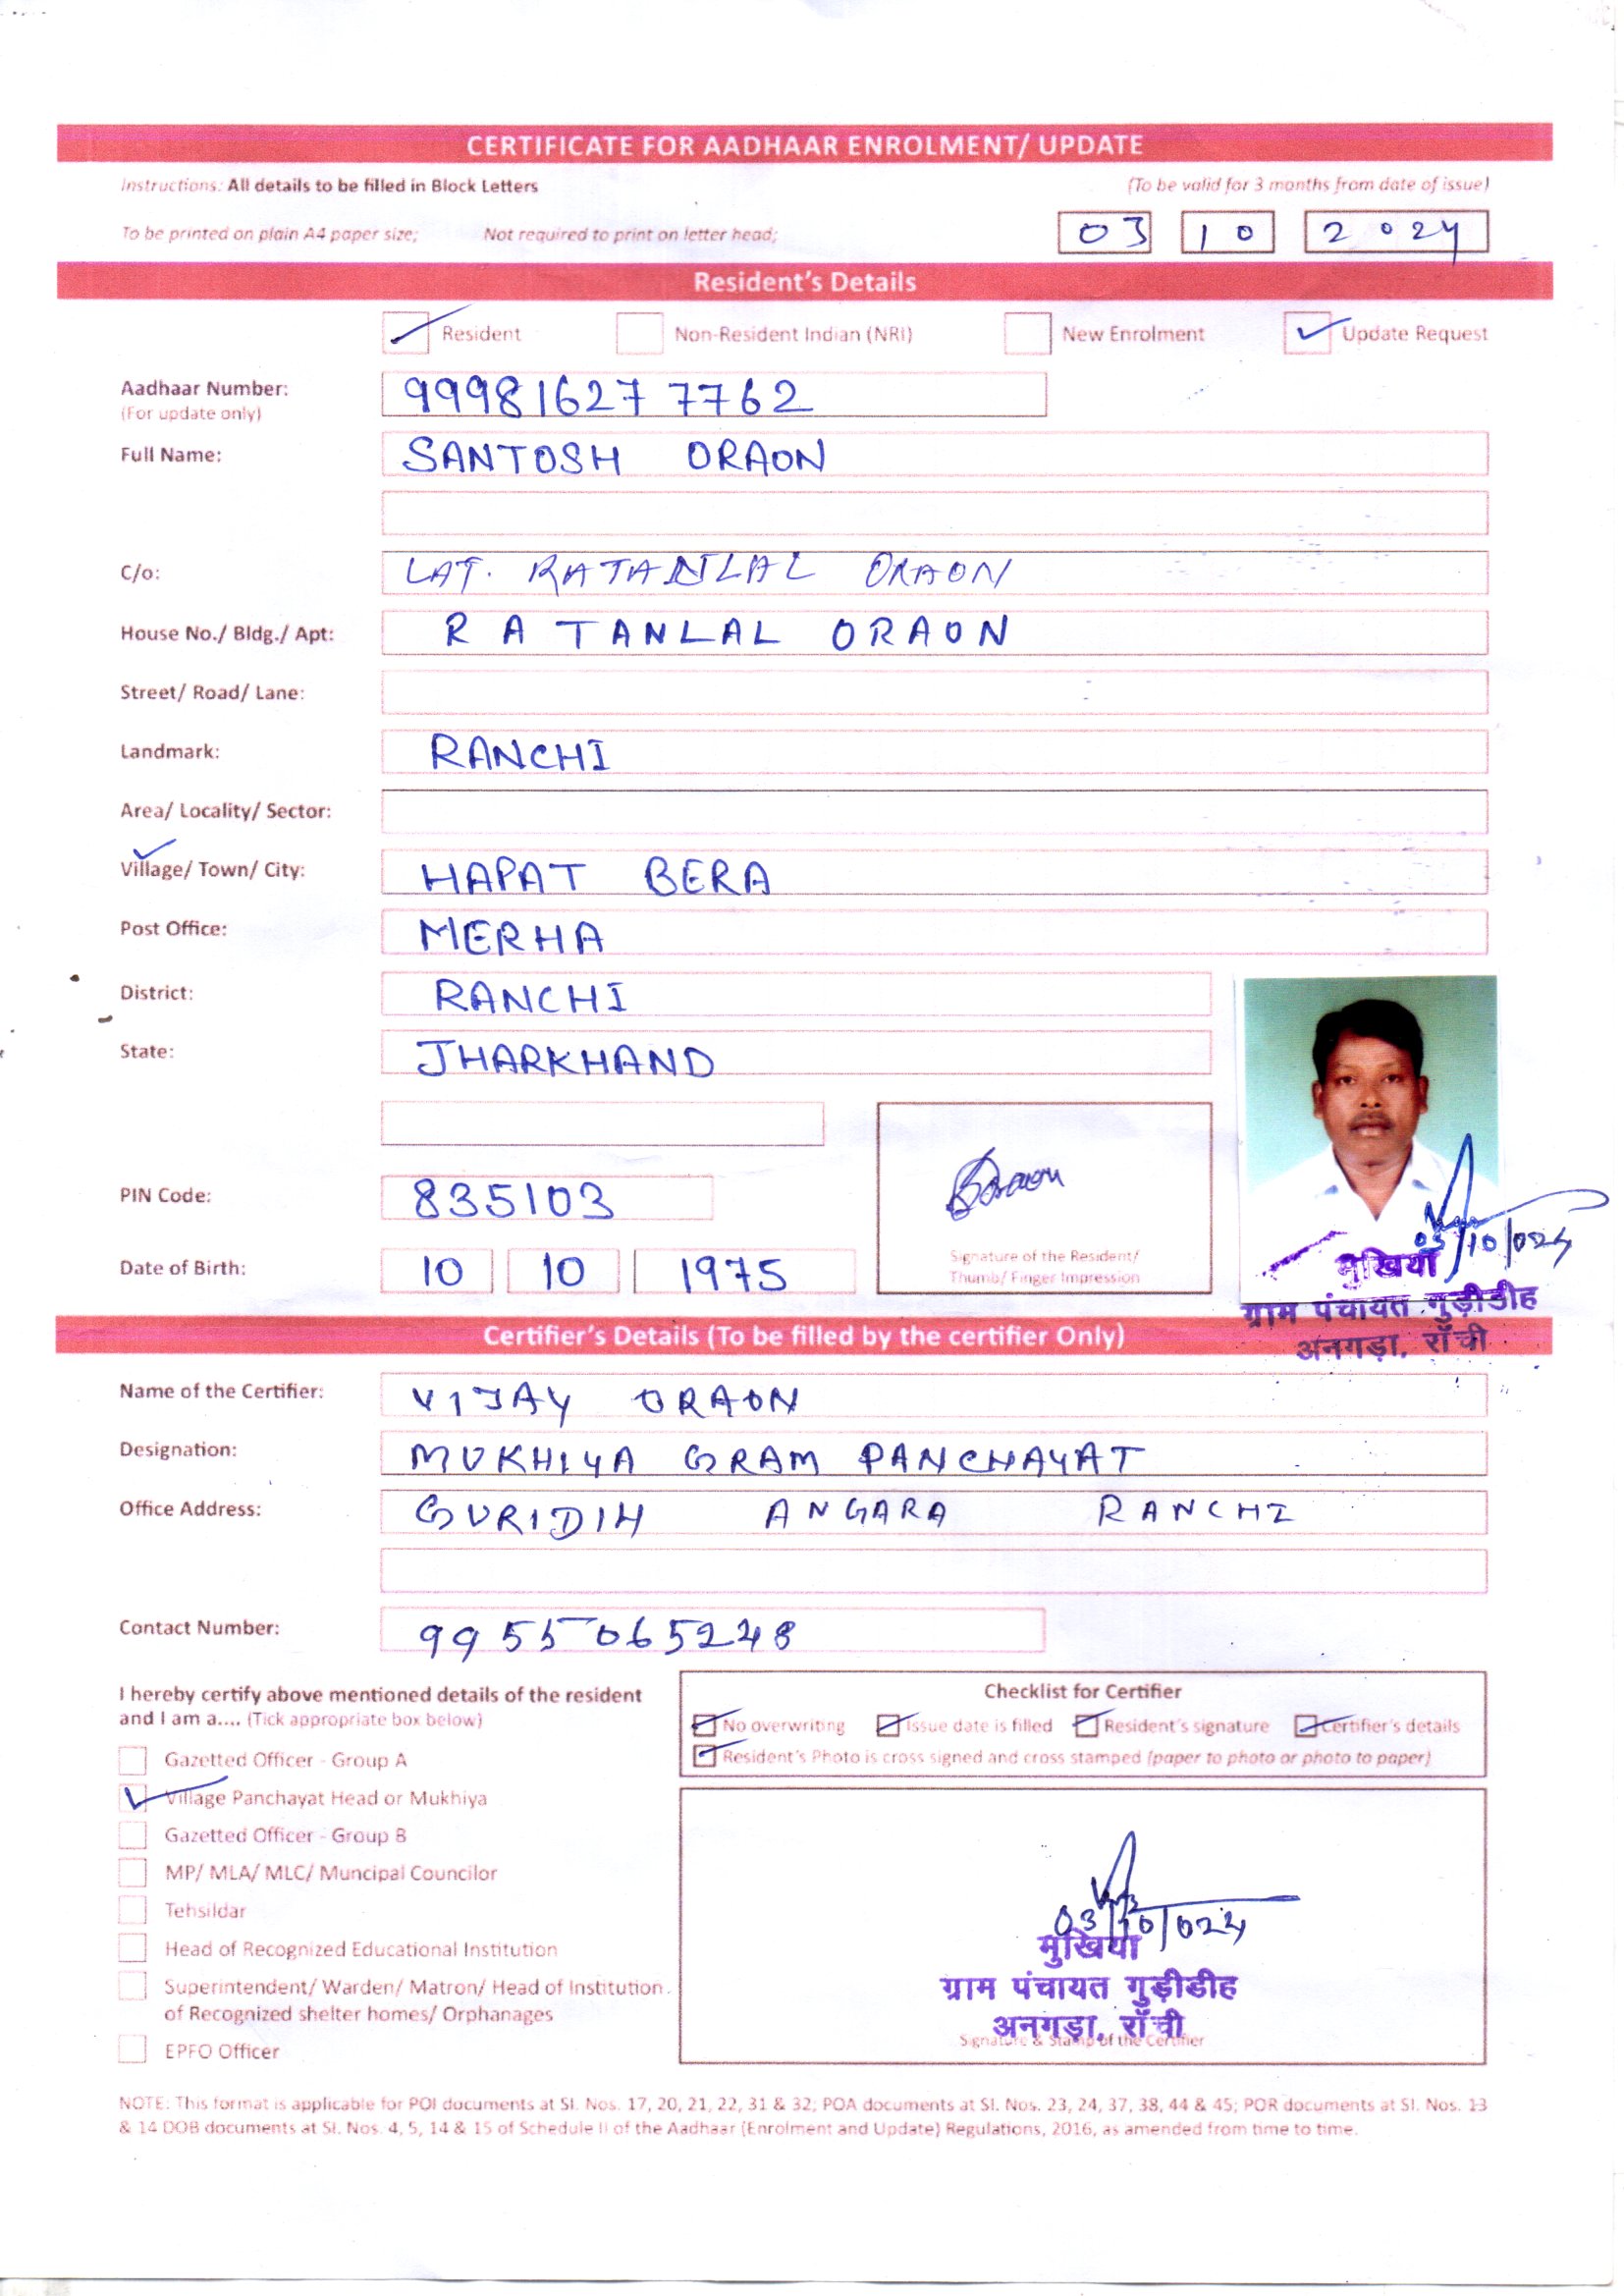 CERTIFICATE FOR AADHAAR ENROLMENT/ UPDATE
Instructions: All details to be filled in Block Letters
(To be valid for 3 months from date of issue)
To be printed on plain A4 paper size; Not required to print on letter head;
03 10 2024
Resident's Details
Resident Non-Resident Indian (NRI) New Enrolment Update Request
Aadhaar Number: 999816277762
(For update only)
Full Name: SANTOSH ORAON
C/o: LAT. RATANLAL ORAON
House No./ Bldg./ Apt: RATANLAL ORAON
Street/ Road/ Lane:
Landmark: RANCHI
Area/ Locality/ Sector:
Village/ Town/ City: HAPAT BERA
Post Office: MERHA
District: RANCHI
State: JHARKHAND
PIN Code: 835103
Signature of the Resident/
Thumb/ Finger Impression
Date of Birth: 10 10 1975
03/10/024
मुखिया
ग्राम पंचायत गुड़ीडीह
अनगड़ा, राँची
Certifier's Details (To be filled by the certifier Only)
Name of the Certifier: VIJAY ORAON
Designation: MUKHIYA GRAM PANCHAYAT
Office Address: GURIDIH ANGARA RANCHI
Contact Number: 9955065248
I hereby certify above mentioned details of the resident
and I am a.... (Tick appropriate box below)
Gazetted Officer - Group A
Village Panchayat Head or Mukhiya
Gazetted Officer - Group B
MP/ MLA/ MLC/ Muncipal Councilor
Tehsildar
Head of Recognized Educational Institution
Superintendent/ Warden/ Matron/ Head of Institution
of Recognized shelter homes/ Orphanages
EPFO Officer
Checklist for Certifier
No overwriting Issue date is filled Resident's signature Certifier's details
Resident's Photo is cross signed and cross stamped (paper to photo or photo to paper)
03/10/024
मुखिया
ग्राम पंचायत गुड़ीडीह
अनगड़ा, राँची
Signature & Stamp of the Certifier
NOTE: This format is applicable for POI documents at SI. Nos. 17, 20, 21, 22, 31 & 32; POA documents at SI. Nos. 23, 24, 37, 38, 44 & 45; POR documents at SI. Nos. 13
& 14 DOB documents at SI. Nos. 4, 5, 14 & 15 of Schedule II of the Aadhaar (Enrolment and Update) Regulations, 2016, as amended from time to time.